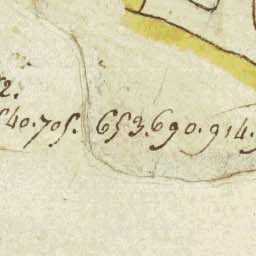 2.
40.705. 653.690.914.